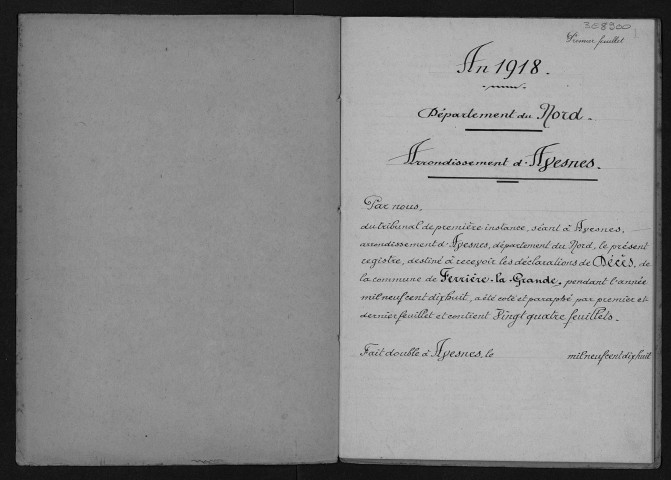 308900
Premier feuillet
An 1918.
Département du Nord.
Arrondissement d'Avesnes.
Par nous,
du tribunal de première instance, séant à Avesnes,
arrondissement d'Avesnes, département du Nord, le présent
registre, destiné à recevoir les déclarations de Décès, de
la commune de Ferrière-la-Grande, pendant l'année
mil neuf cent dix huit, a été coté et paraphé par premier et
dernier feuillet et contient Vingt quatre feuillets.
Fait double à Avesnes, le mil neuf cent dix huit